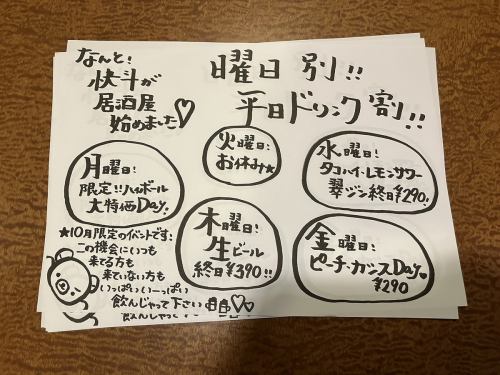 なんと!
快斗が
居酒屋
始めました♡
曜日別!!
平日ドリンク割!!
月曜日!
限定!!ハイボール
大特価Day!!
火曜日!
お休み★
水曜日!
タコハイ・レモンサワー
翠ジン終日¥290!
木曜日!
生ビール
終日¥390!!
金曜日!
ピーチ・カシスDay♡
¥290
★10月限定のイベントです!
この機会にいつも
来てる方も
来ていない方も
いっぱいいーっぱい
飲んじゃって下さい♡♡